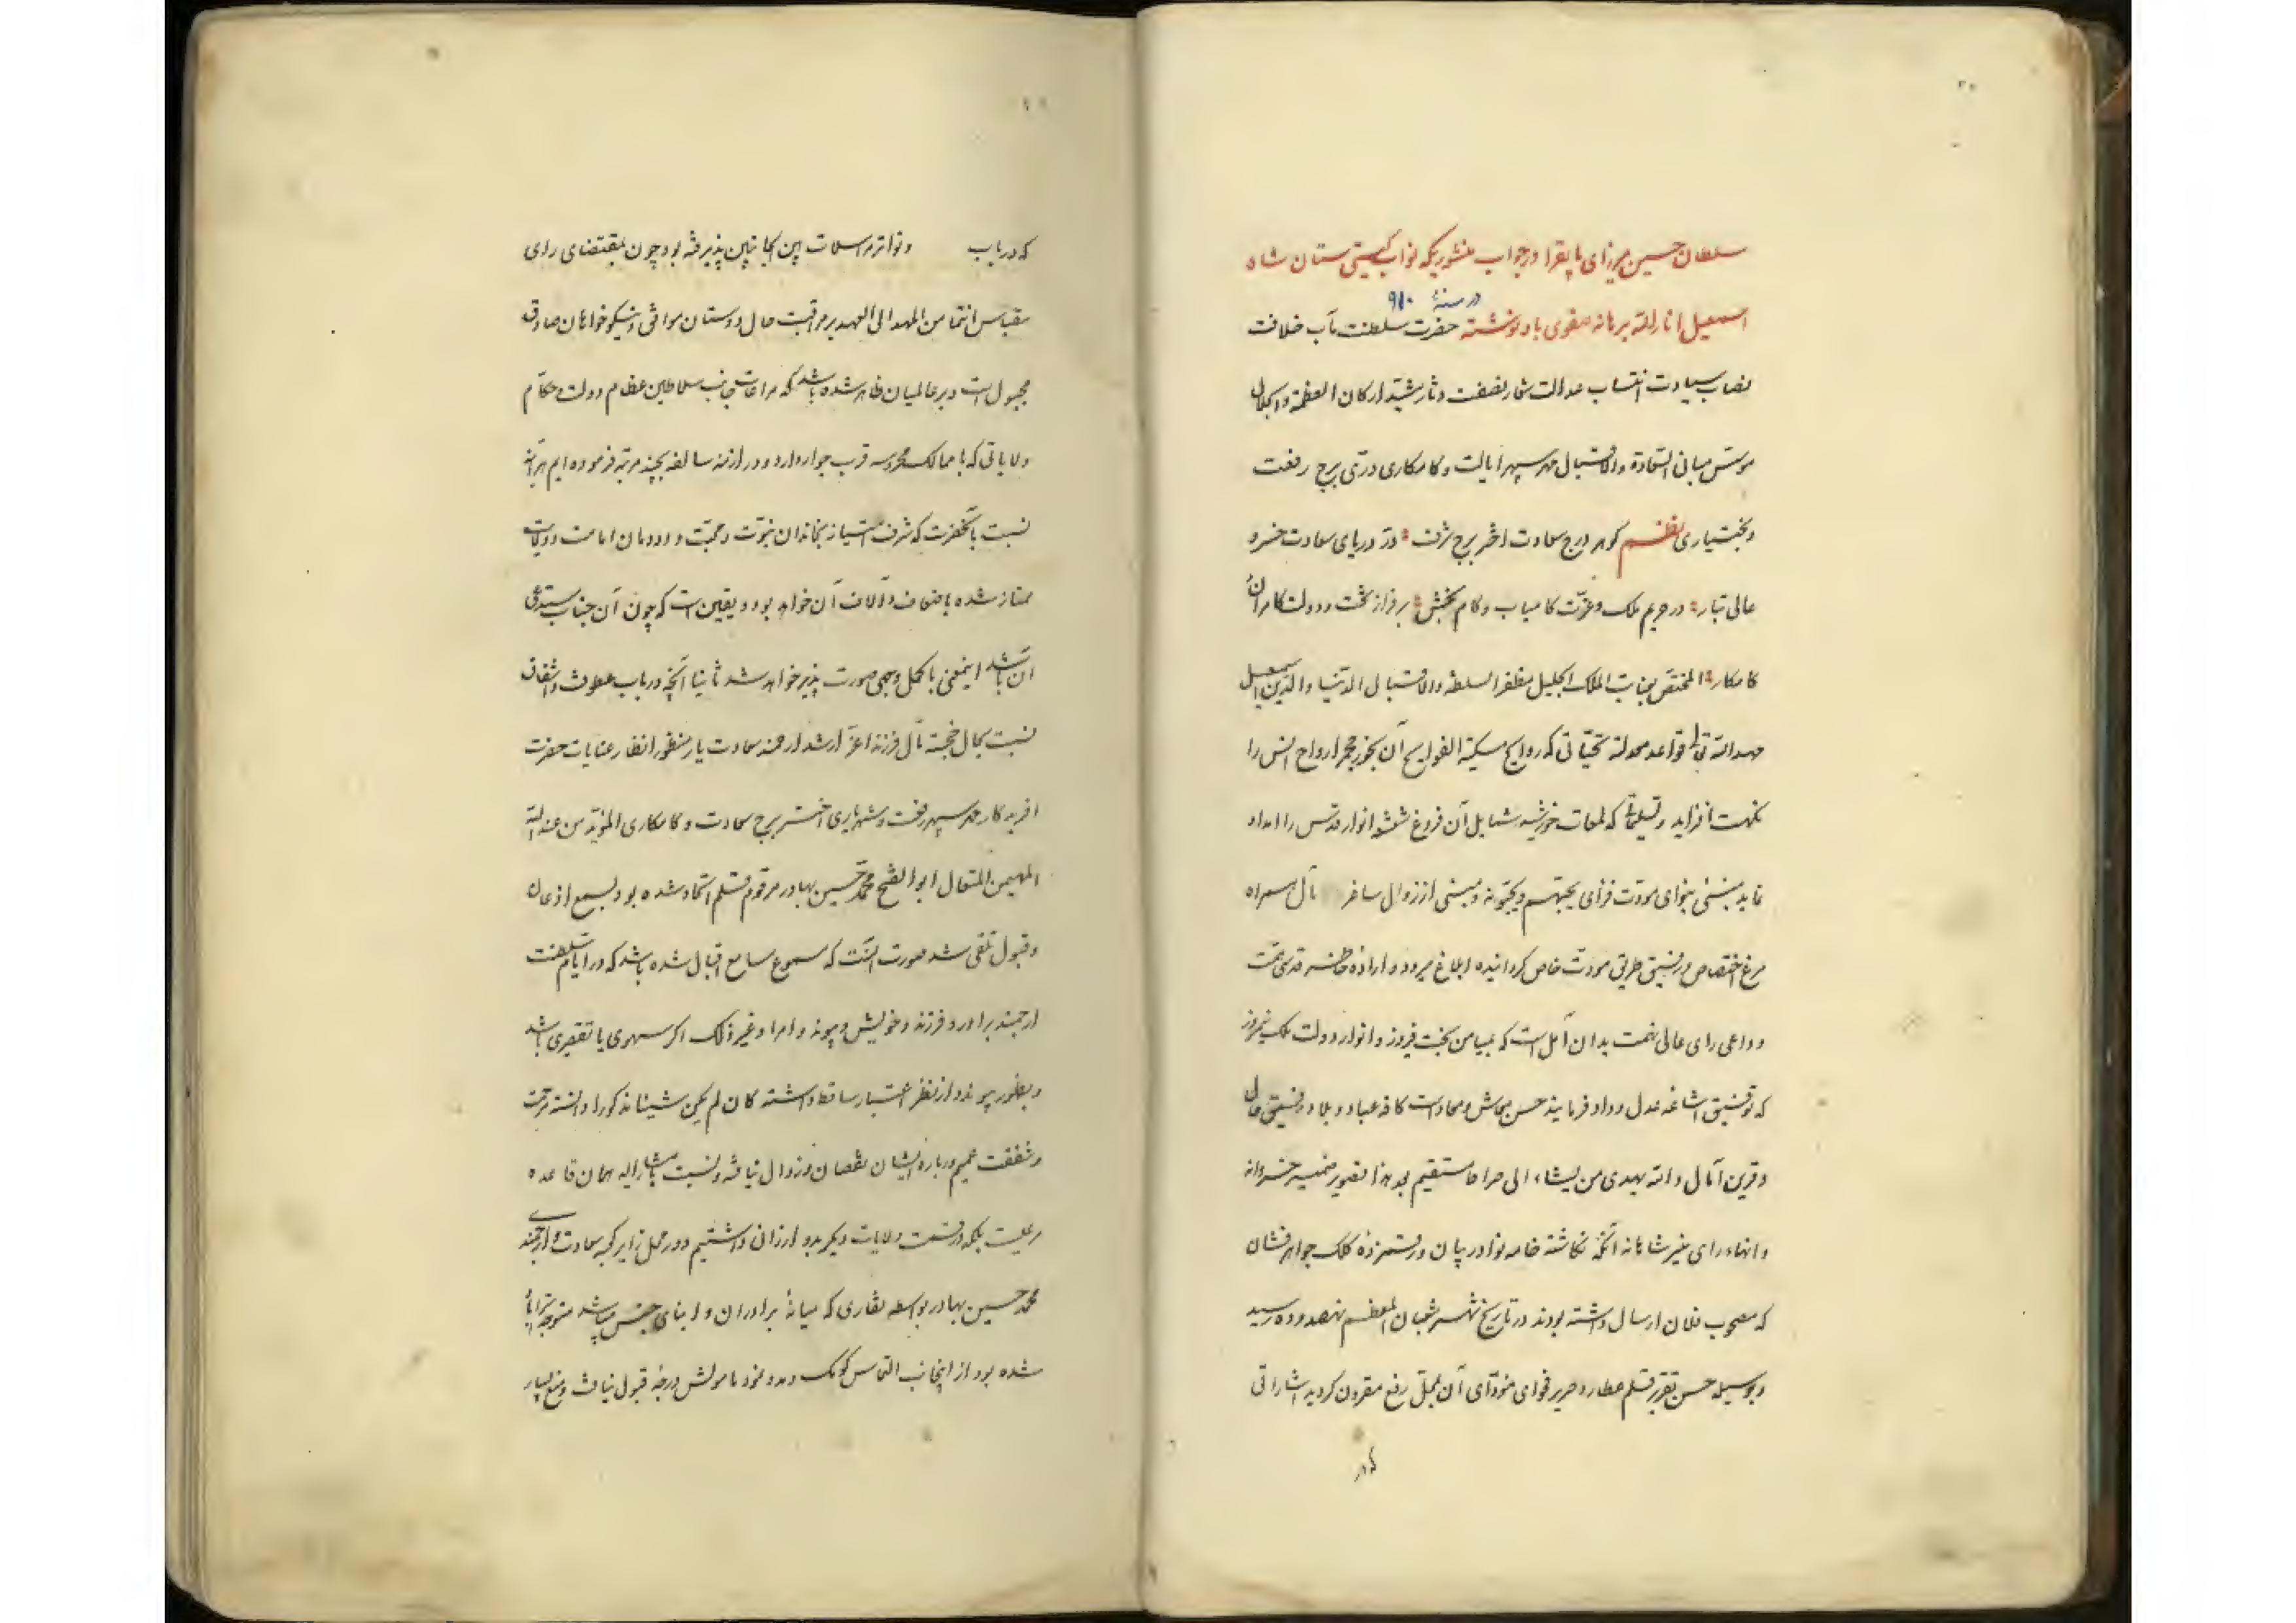 سلطان حسین میرزای بایقرا در جواب منشوریکه نواب گیتی ستان شاه
در سنهٔ ۹۱۰
اسمعیل انار الله برهانه صفوی باو نوشته حضرت سلطنت مآب خلافت
نصاب سیادت انتساب عدالت شعار نصفت دثار مشید ارکان العظمة والجلال
موسس مبانی السعادة والاقبال مهر سپهر ایالت و کامکاری دری برج رفعت
و بختیاری نظم گوهر درج سعادت اختر برج شرف در دریای سعادت خسرو
عالی تبار در حریم ملک و عزت کامیاب و کام بخش بر فراز تخت و دولت کامران
کامکار المختص بعنایت الملک الجلیل مظفر السلطنه والاقبال الدنیا والدین اسمعیل
مهد الله تعالی قواعد معدلته تحیاتی که روایح مسکیة الفوایح آن بخور مجمر ارواح انس را
نکهت افزاید و تسلیماتی که لمعات خورشید شمایل آن فروغ شعشعه انوار قدس را امداد
نماید مبتنی بنوای مودت فزای یحبهم و یحبونه و مبنی از زوال ساغر مآل همراه
مرغ اختصاص و رفیق طریق مودت خاص گردانیده ابلاغ میرود و اراده خاطر قدسی همت
و داعی رای عالی نهمت بدان آمل است که بمیامن بخت فیروز و انوار دولت ملک نیمروز
که توفیق اشاعه عدل و داد فرمایند حسن معاش و معادات کافه عباد و بلاد رفیق حال
و قرین آمال و الله یهدی من یشاء الی صراط مستقیم بعد هذا تصویر ضمیر خسروانه
و انهاء رای منیر شاهانه آنکه نگاشته خامه نوادر بیان و رقمزده کلک جواهر فشان
که مصحوب فلان ارسال داشته بودند در تاریخ شهر شعبان المعظم نهصد و ده رسید
و بوسیله حسن تقریر قلم عطارد حریر فحوای مودای آن بمحل رفع مقرون گردید اشاراتی
که در
که در باب و تواتر مراسلات بین الجانبین پذیرفته بود چون بمقتضای رای
مقباس انتما من المهد الی العهد بر مراقبت حال دوستان موافق و نیکو خواهان صادق
مجبول است و بر عالمیان ظاهر شده باشد که مراعات جانب سلاطین عظام و ولات و حکام
ولایاتی که با ممالک محروسه قرب جوار دارد و در ازمنه سالفه بچند مرتبه فرموده ایم هرآینه
نسبت بآنحضرت که شرف امتیاز بخاندان نبوت و محبت و دودمان امامت و ولایت
ممتاز شده باضعاف و آلاف آن خواهد بود و یقین است که چون آن جناب مستدعی
آن باشد اینمعنی باکمل وجهی صورت پذیر خواهد شد ثانیا آنچه در باب عطوفت و اشفاق
نسبت بحال خجسته مآل فرزند اعز ارشد ارجمند سعادت یار منظور انظار عنایات حضرت
آفریدکار مهر سپهر رفعت و شهریاری اختر برج سعادت و کامکاری الموید من عند الله
المهیمن المتعال ابو الفتح محمد حسین بهادر مرقوم قلم اتحاد شده بود بسمع اذعان
و قبول تلقی شد صورت آنست که مسموع مسامع اقبال شده باشد که در ایام سلطنت
ارجمند برادر و فرزند و خویش و پیوند و امرا و غیر ذلک اگر سهوی یا تقصیری باشد
و بظهور پیوندد از نظر اعتبار ساقط داشته کان لم یکن شیئا مذکورا دانسته مرحمت
و شفقت عمیم درباره ایشان نقصان و زوال نیافته و نسبت بمشار الیه همان قاعده
مرعیست بلکه در قسمت ولایات دیگر بدو ارزان داشتیم و در محل زایر کعبه سعادت و ارجمندی
محمد حسین بهادر بواسطه نقاری که میانهٔ برادران و ابنای جنس میباشد متوجه استراباد
شده بود از اینجانب التماس کومک و مدد نمود مامولش درجه قبول نیافت و منع بسیار